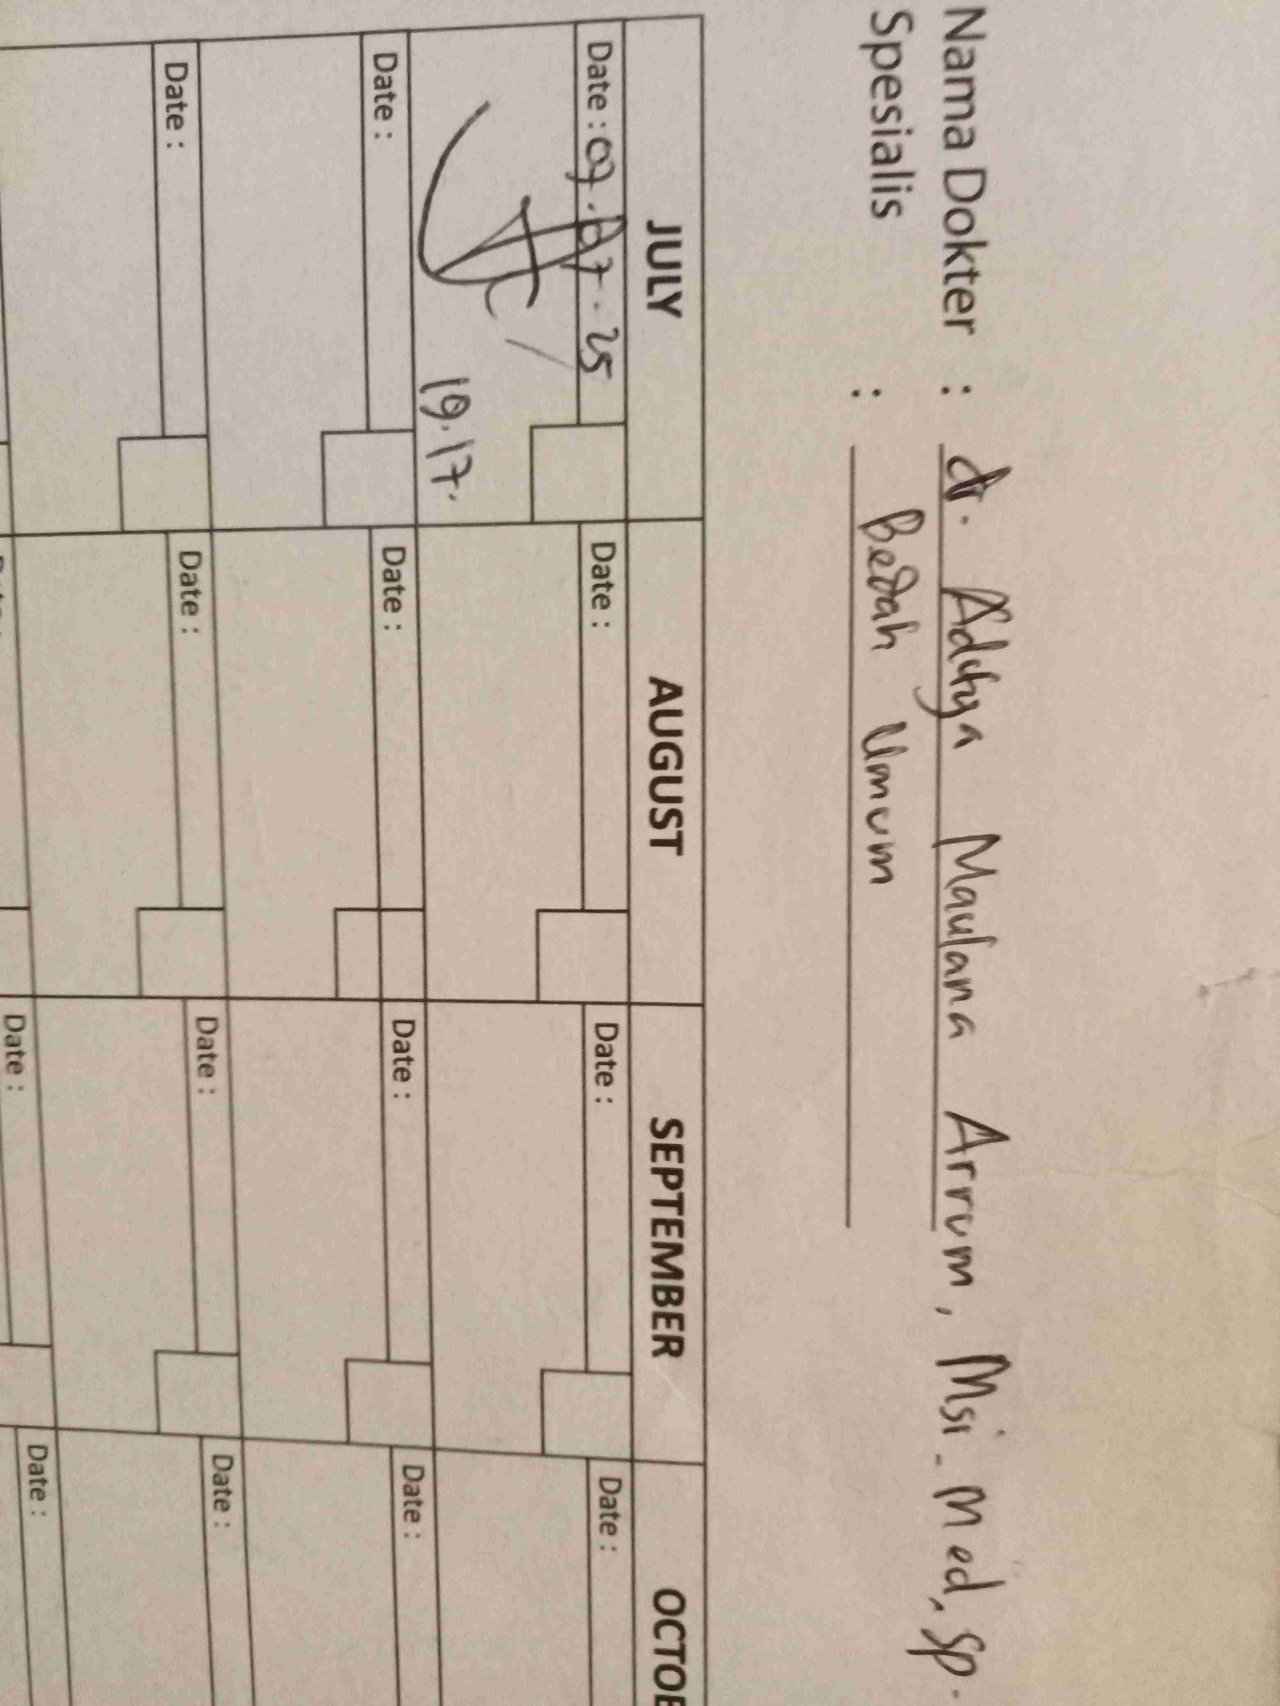 Nama Dokter : dr. Aditya Maulana Arrum, Msi-Med, Sp.
Spesialis : Bedah Umum
JULY AUGUST SEPTEMBER OCTOB
Date : 09.07.25 Date : Date : Date :
19.17.
Date : Date : Date : Date :
Date : Date : Date : Date :
Date : Date :